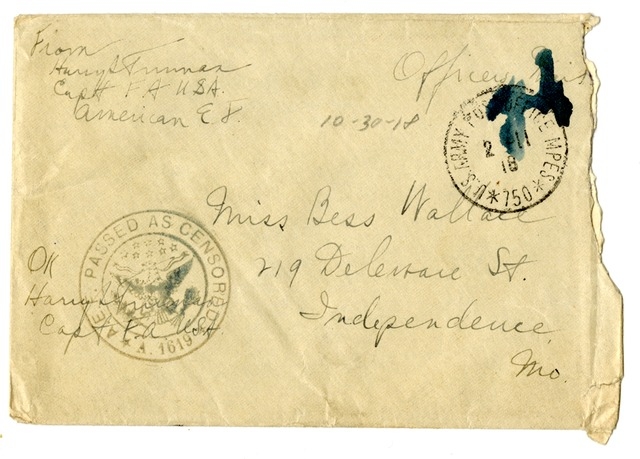 From
Harry S Truman
Capt F A USA.
American E F.
Officers Mail
10-30-18
U.S. ARMY POST OFFICE MPES
2 11
18
*750*
Miss Bess Wallace
219 Delaware St.
Independence
Mo.
A.E.F. PASSED AS CENSORED
A. 1619
OK
Harry S Truman
Capt F.A. USA